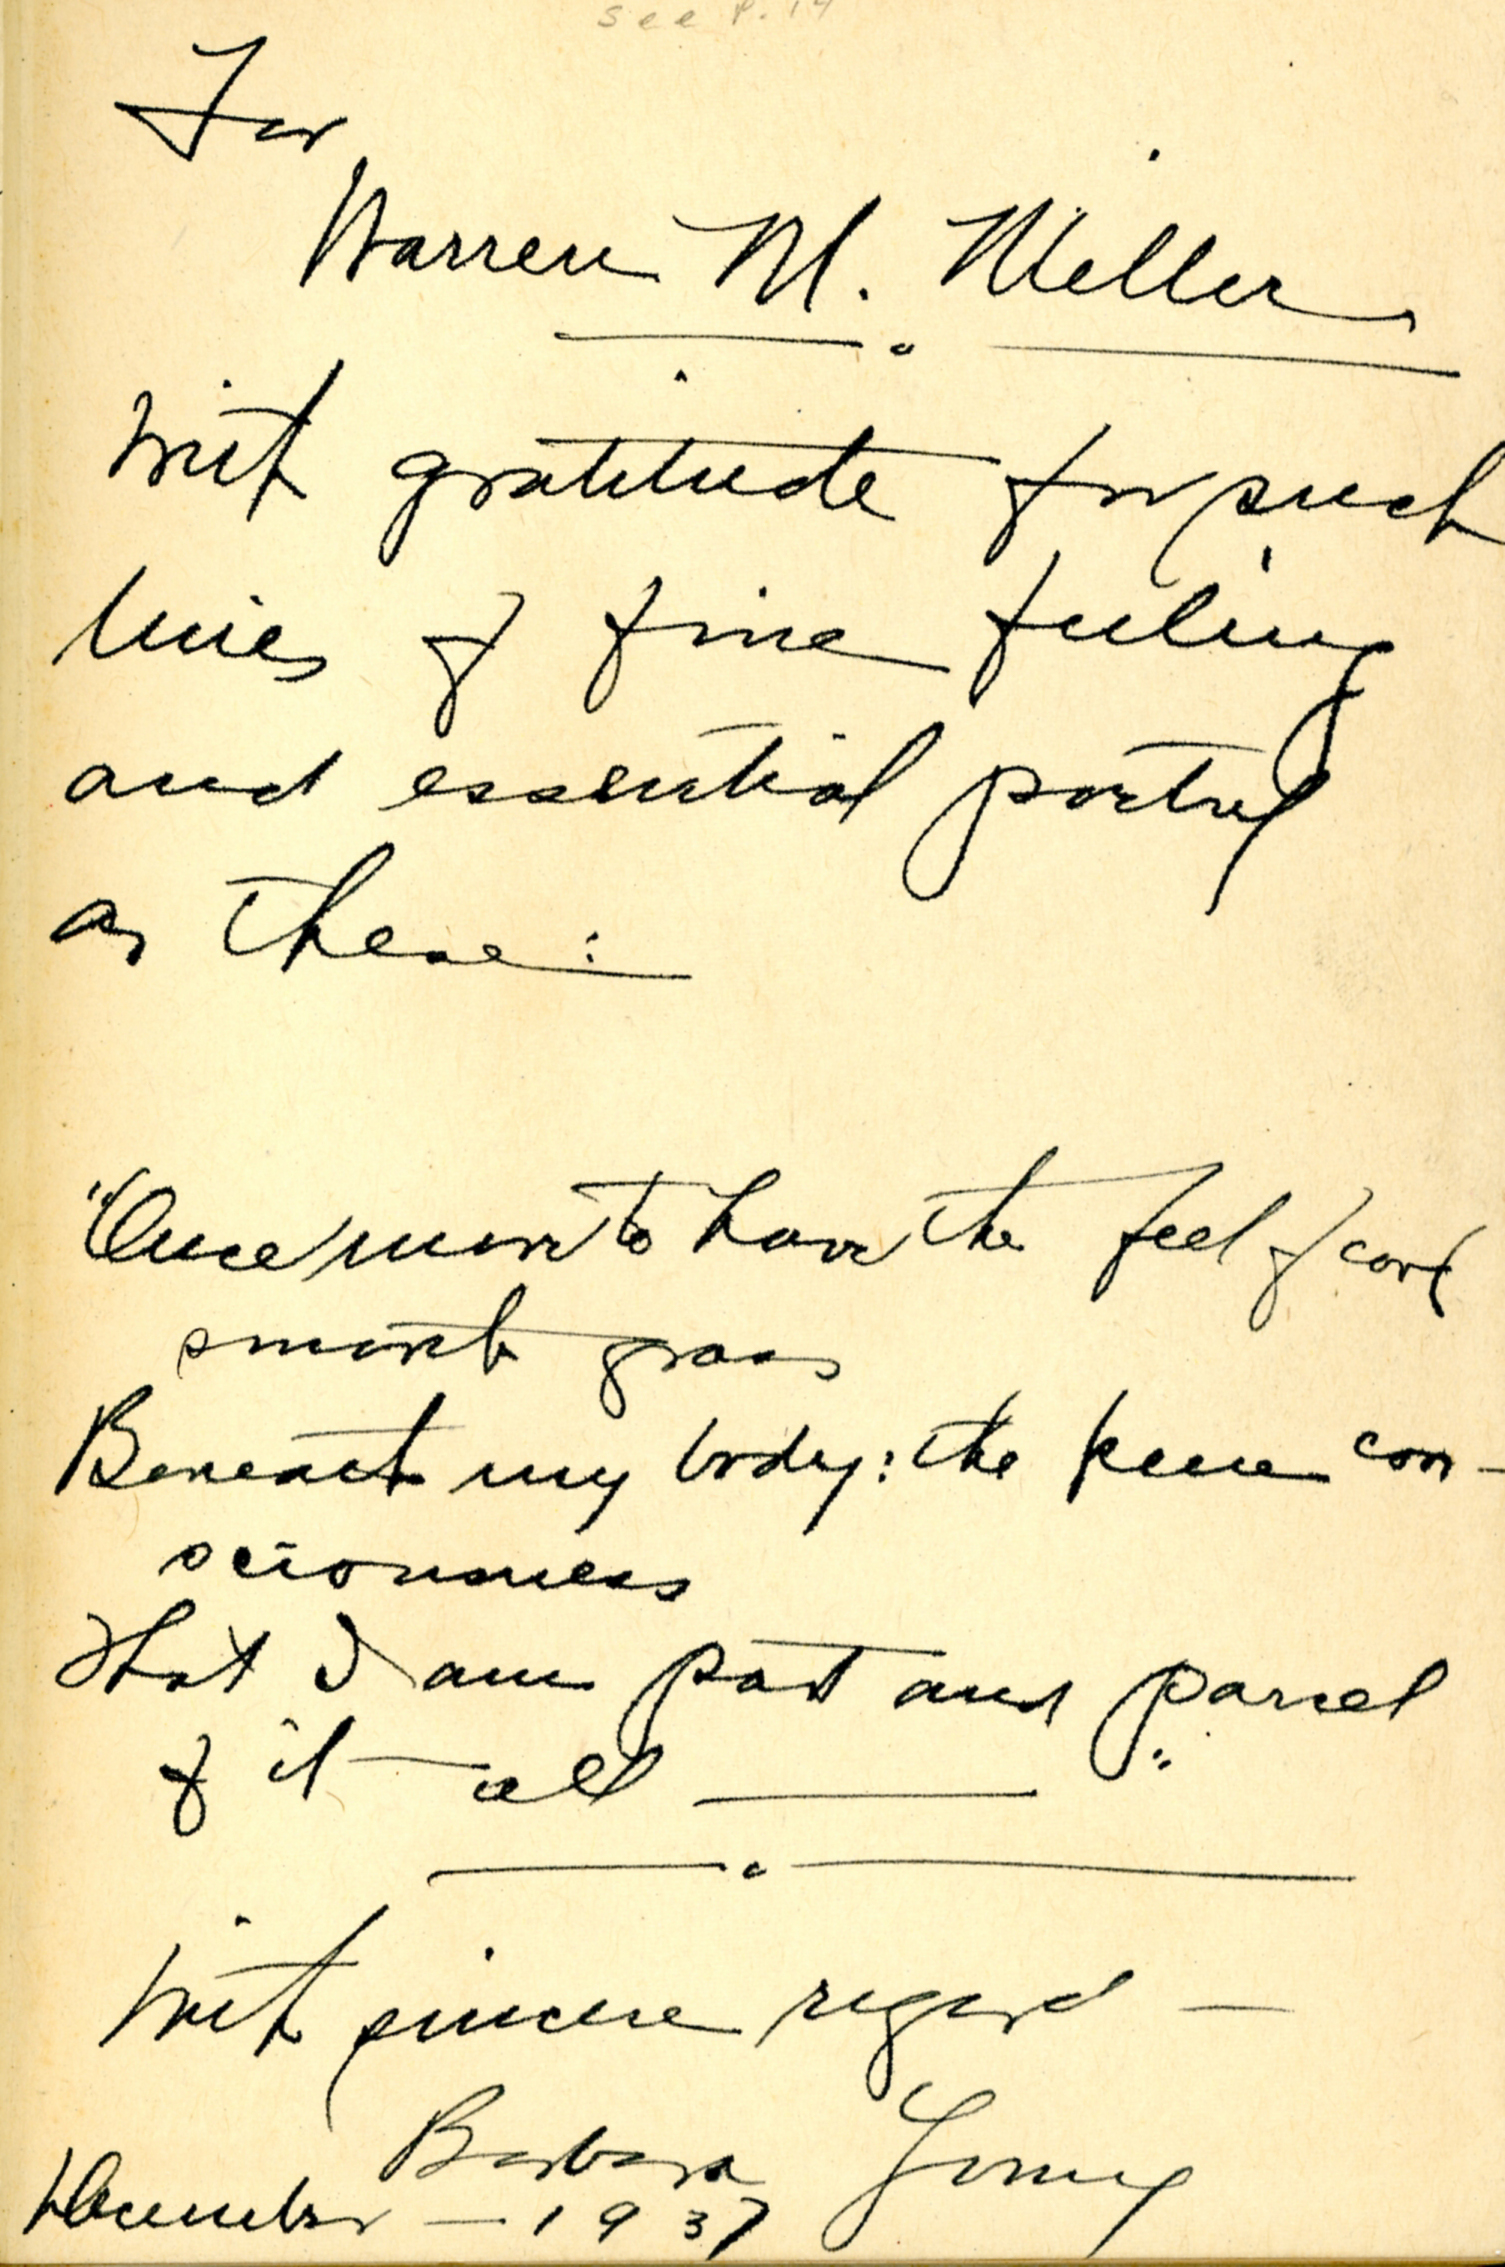 see P. 14
For
Warren M. Miller
with gratitude for such
lines of fine feeling
and essential poetry
as these:
"Once more to have the feel of cool
smooth grass
Beneath my body: the keen con-
sciousness
That I am part and parcel
of it all — "
With sincere regard —
Barbara Young
December — 1937